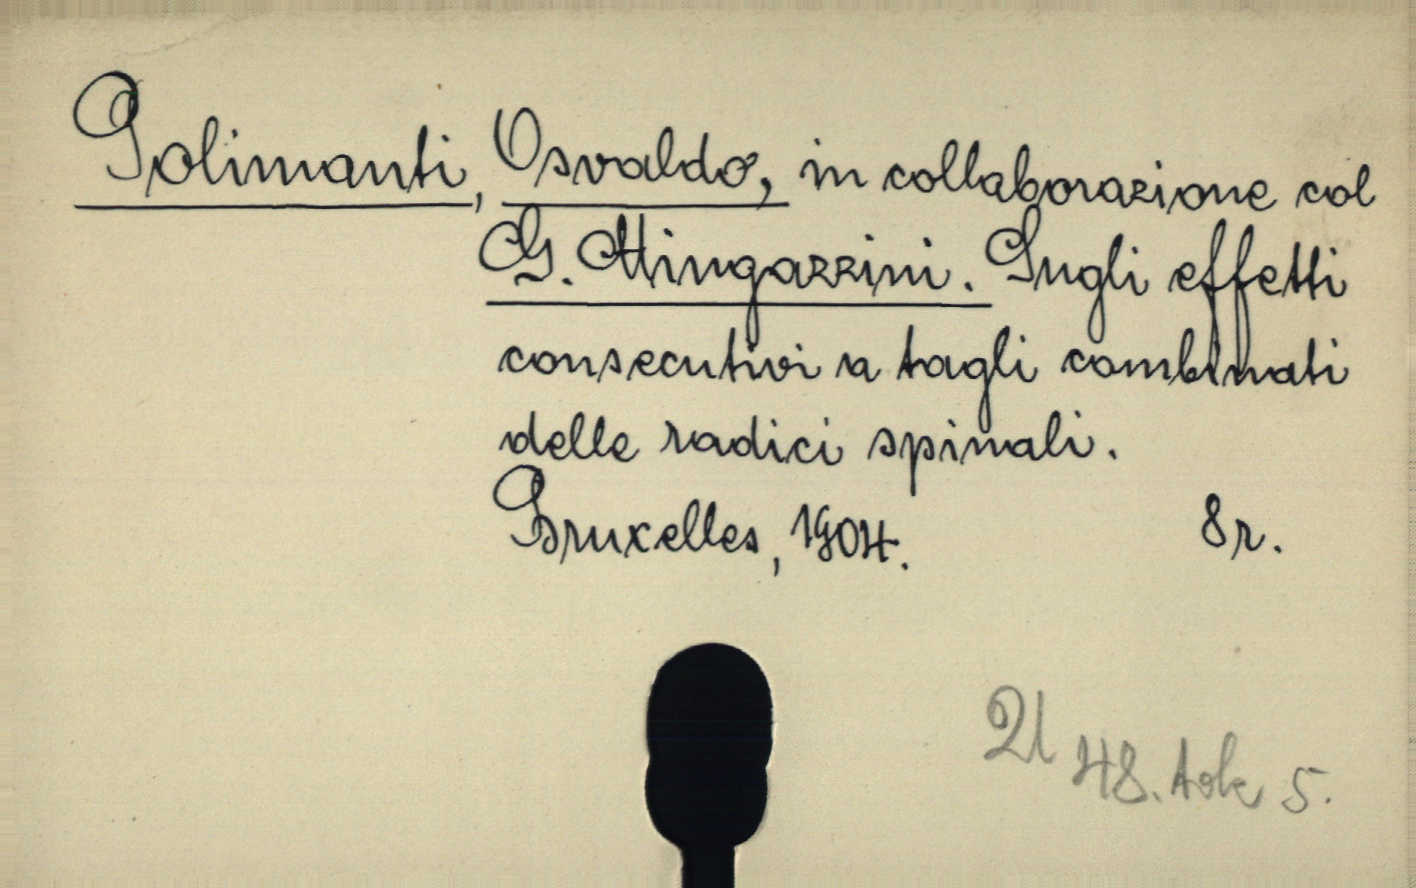 Polimanti, Osvaldo, in collaborazione col
G. Mingazzini. Sugli effetti
consecutivi a tagli combinati
delle radici spinali.
Bruxelles, 1904. 8r.
48. tok 5.